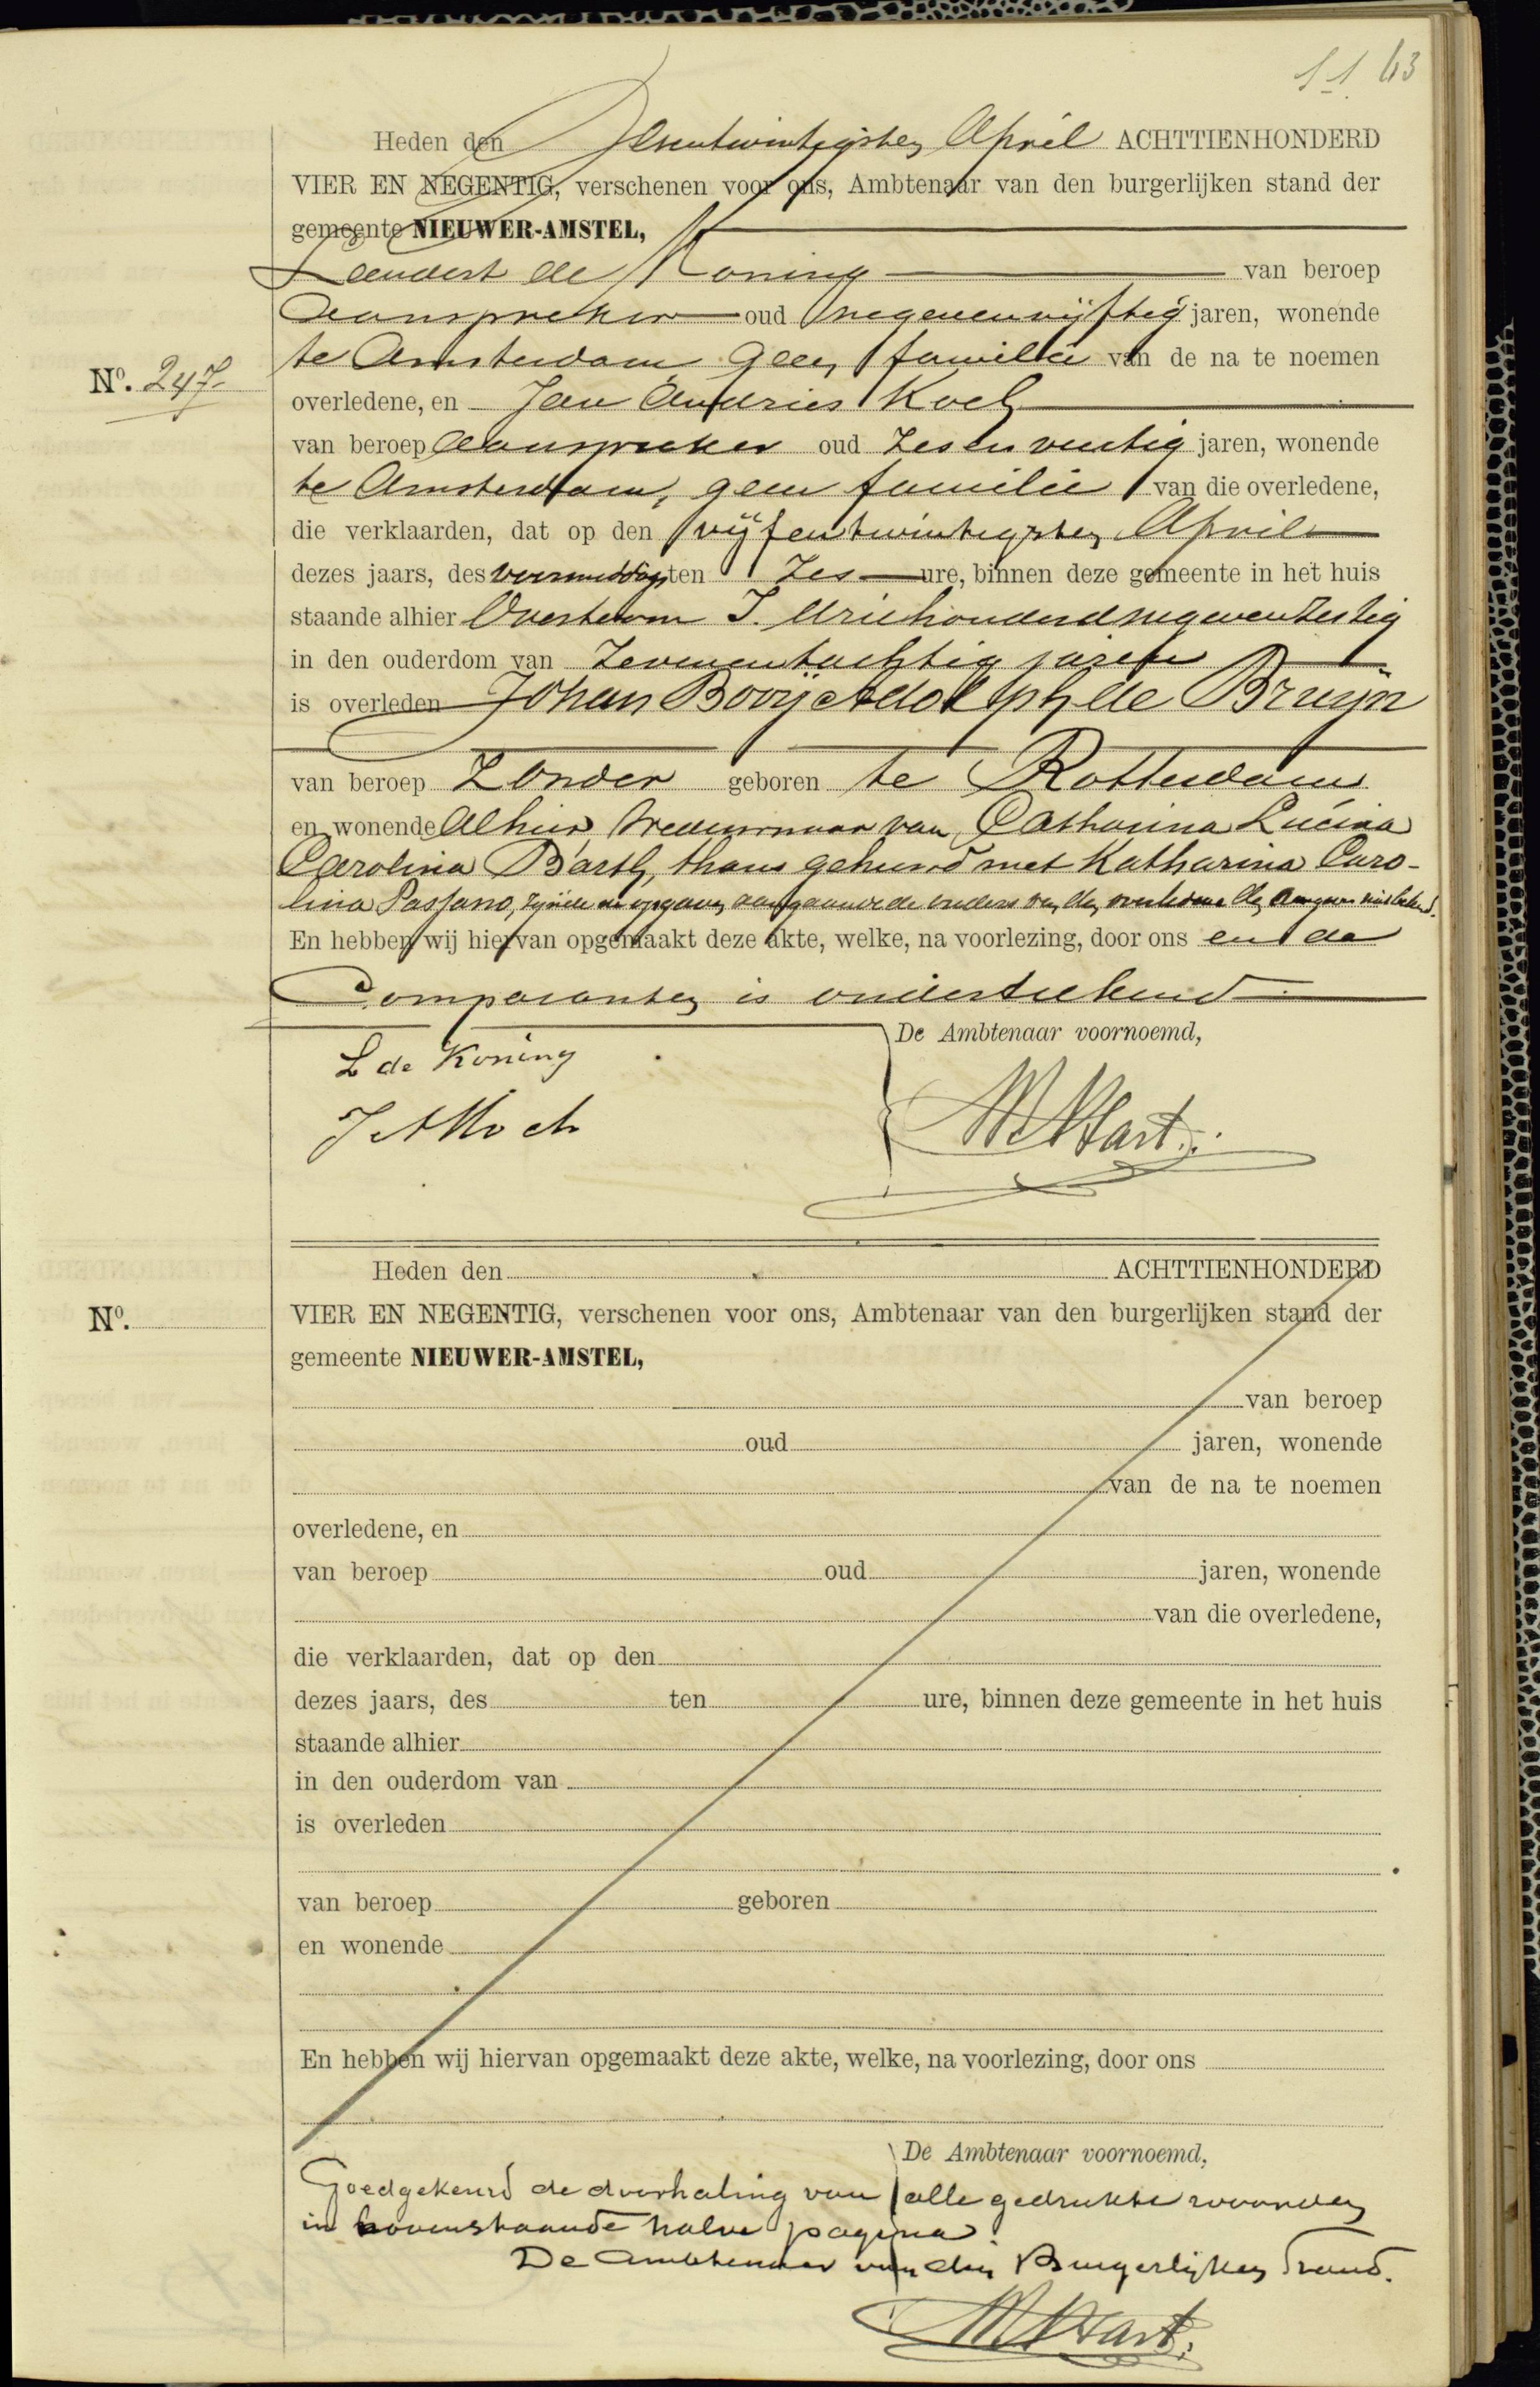 63
Heden den Zesentwintigsten April ACHTTIENHONDERD
VIER EN NEGENTIG, verschenen voor ons, Ambtenaar van den burgerlijken stand der
gemeente NIEUWER-AMSTEL,
Leendert de Koning van beroep
Aanspreker oud negenenvijftig jaren, wonende
te Amsterdam geen familie van de na te noemen
No. 247
overledene, en Jan Andries Koch
van beroep Aanspreker oud zesenveertig jaren, wonende
te Amsterdam, geen familie van die overledene,
die verklaarden, dat op den vijfentwintigsten April
dezes jaars, des voormiddags ten Zes ure, binnen deze gemeente in het huis
staande alhier Overtoom I. driehonderdnegenenzestig
in den ouderdom van Zevenentachtig jaren
is overleden Johan Booij Adolph de Bruijn
van beroep Zonder geboren te Rotterdam
en wonende Alhier Weduwnaar van Catharina Lucina
Carolina Barth, thans gehuwd met Katharina Caro-
lina Passano, zijnde de opgaven aangaande de ouders van den overledene den Aangever niet bekend.
En hebben wij hiervan opgemaakt deze akte, welke, na voorlezing, door ons en de
Comparanten is onderteekend
De Ambtenaar voornoemd,
L de Koning
J A Koch
Hart.
Heden den ACHTTIENHONDERD
No.
VIER EN NEGENTIG, verschenen voor ons, Ambtenaar van den burgerlijken stand der
gemeente NIEUWER-AMSTEL,
van beroep
oud jaren, wonende
van de na te noemen
overledene, en
van beroep oud jaren, wonende
van die overledene,
die verklaarden, dat op den
dezes jaars, des ten ure, binnen deze gemeente in het huis
staande alhier
in den ouderdom van
is overleden
van beroep geboren
en wonende
En hebben wij hiervan opgemaakt deze akte, welke, na voorlezing, door ons
De Ambtenaar voornoemd,
Goedgekeurd de doorhaling van alle gedrukte woorden
in bovenstaande halve pagina.
De Ambtenaar van den Burgerlijken Stand.
Hart.